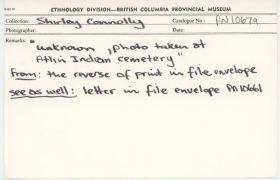 ETHNOLOGY DIVISION—BRITISH COLUMBIA PROVINCIAL MUSEUM
Collection: Shirley Connolly Catalogue No.: PN10679
Photographer: Date:
Remarks: "unknown, photo taken at
Atlin Indian cemetery"
From: the reverse of print in file envelope
see as well: letter in file envelope PN10661